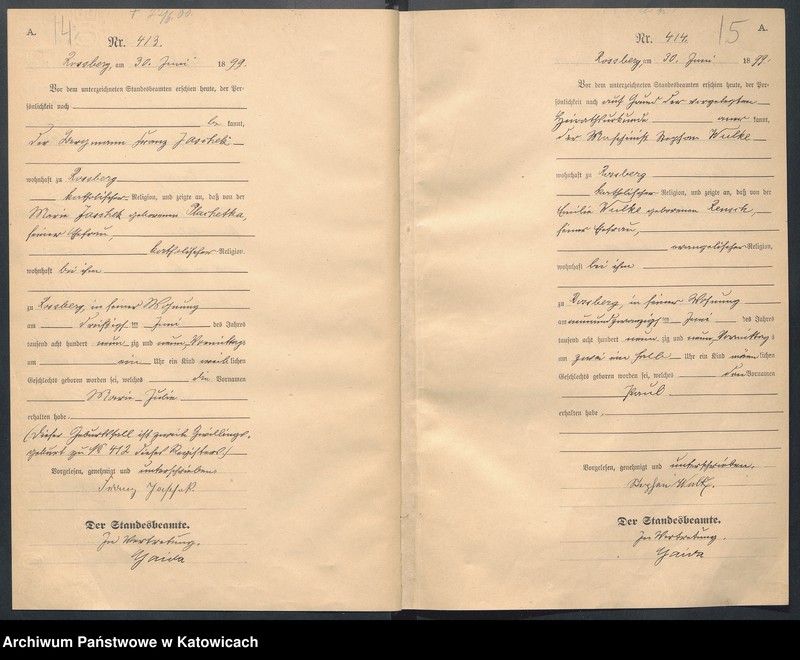 14
A.
Nr. 413.
Rossberg, am 30. Juni 1899.
Vor dem unterzeichneten Standesbeamten erschien heute, der Per-
sönlichkeit nach
be kannt,
der Bergmann Franz Jaschek
wohnhaft zu Rossberg
katholischer Religion, und zeigte an, daß von der
Marie Jaschek geborenen Plachetka,
seiner Ehefrau,
katholischer Religion,
wohnhaft bei ihm
zu Rossberg, in seiner Wohnung
am dreißigsten Juni des Jahres
tausend acht hundert neun zig und neun Vormittags
um ein Uhr ein Kind weib lichen
Geschlechts geboren worden sei, welches die Vornamen
Marie Julie
erhalten habe.
(Dieser Geburtsfall ist zweite Zwillings-
geburt zu No 412 dieses Registers.)
Vorgelesen, genehmigt und unterschrieben
Franz Jaschek
Der Standesbeamte.
In Vertretung.
Gaida
15
A.
Nr. 414.
Rossberg, am 30. Juni 1899.
Vor dem unterzeichneten Standesbeamten erschien heute, der Per-
sönlichkeit nach auf Grund der vorgelegten
Heiratsurkunde aner kannt,
der Maschinist Stephan Wulke
wohnhaft zu Rossberg
katholischer Religion, und zeigte an, daß von der
Emilie Wulke geborenen
seiner Ehefrau,
evangelischer Religion,
wohnhaft bei ihm
zu Rossberg, in seiner Wohnung
am neunundzwanzigsten Juni des Jahres
tausend acht hundert neun zig und neun Vormittags
um zwei ein halb Uhr ein Kind männ lichen
Geschlechts geboren worden sei, welches den Vornamen
Paul
erhalten habe.
Vorgelesen, genehmigt und unterschrieben.
Stephan
Der Standesbeamte.
In Vertretung.
Gaida
Archiwum Państwowe w Katowicach